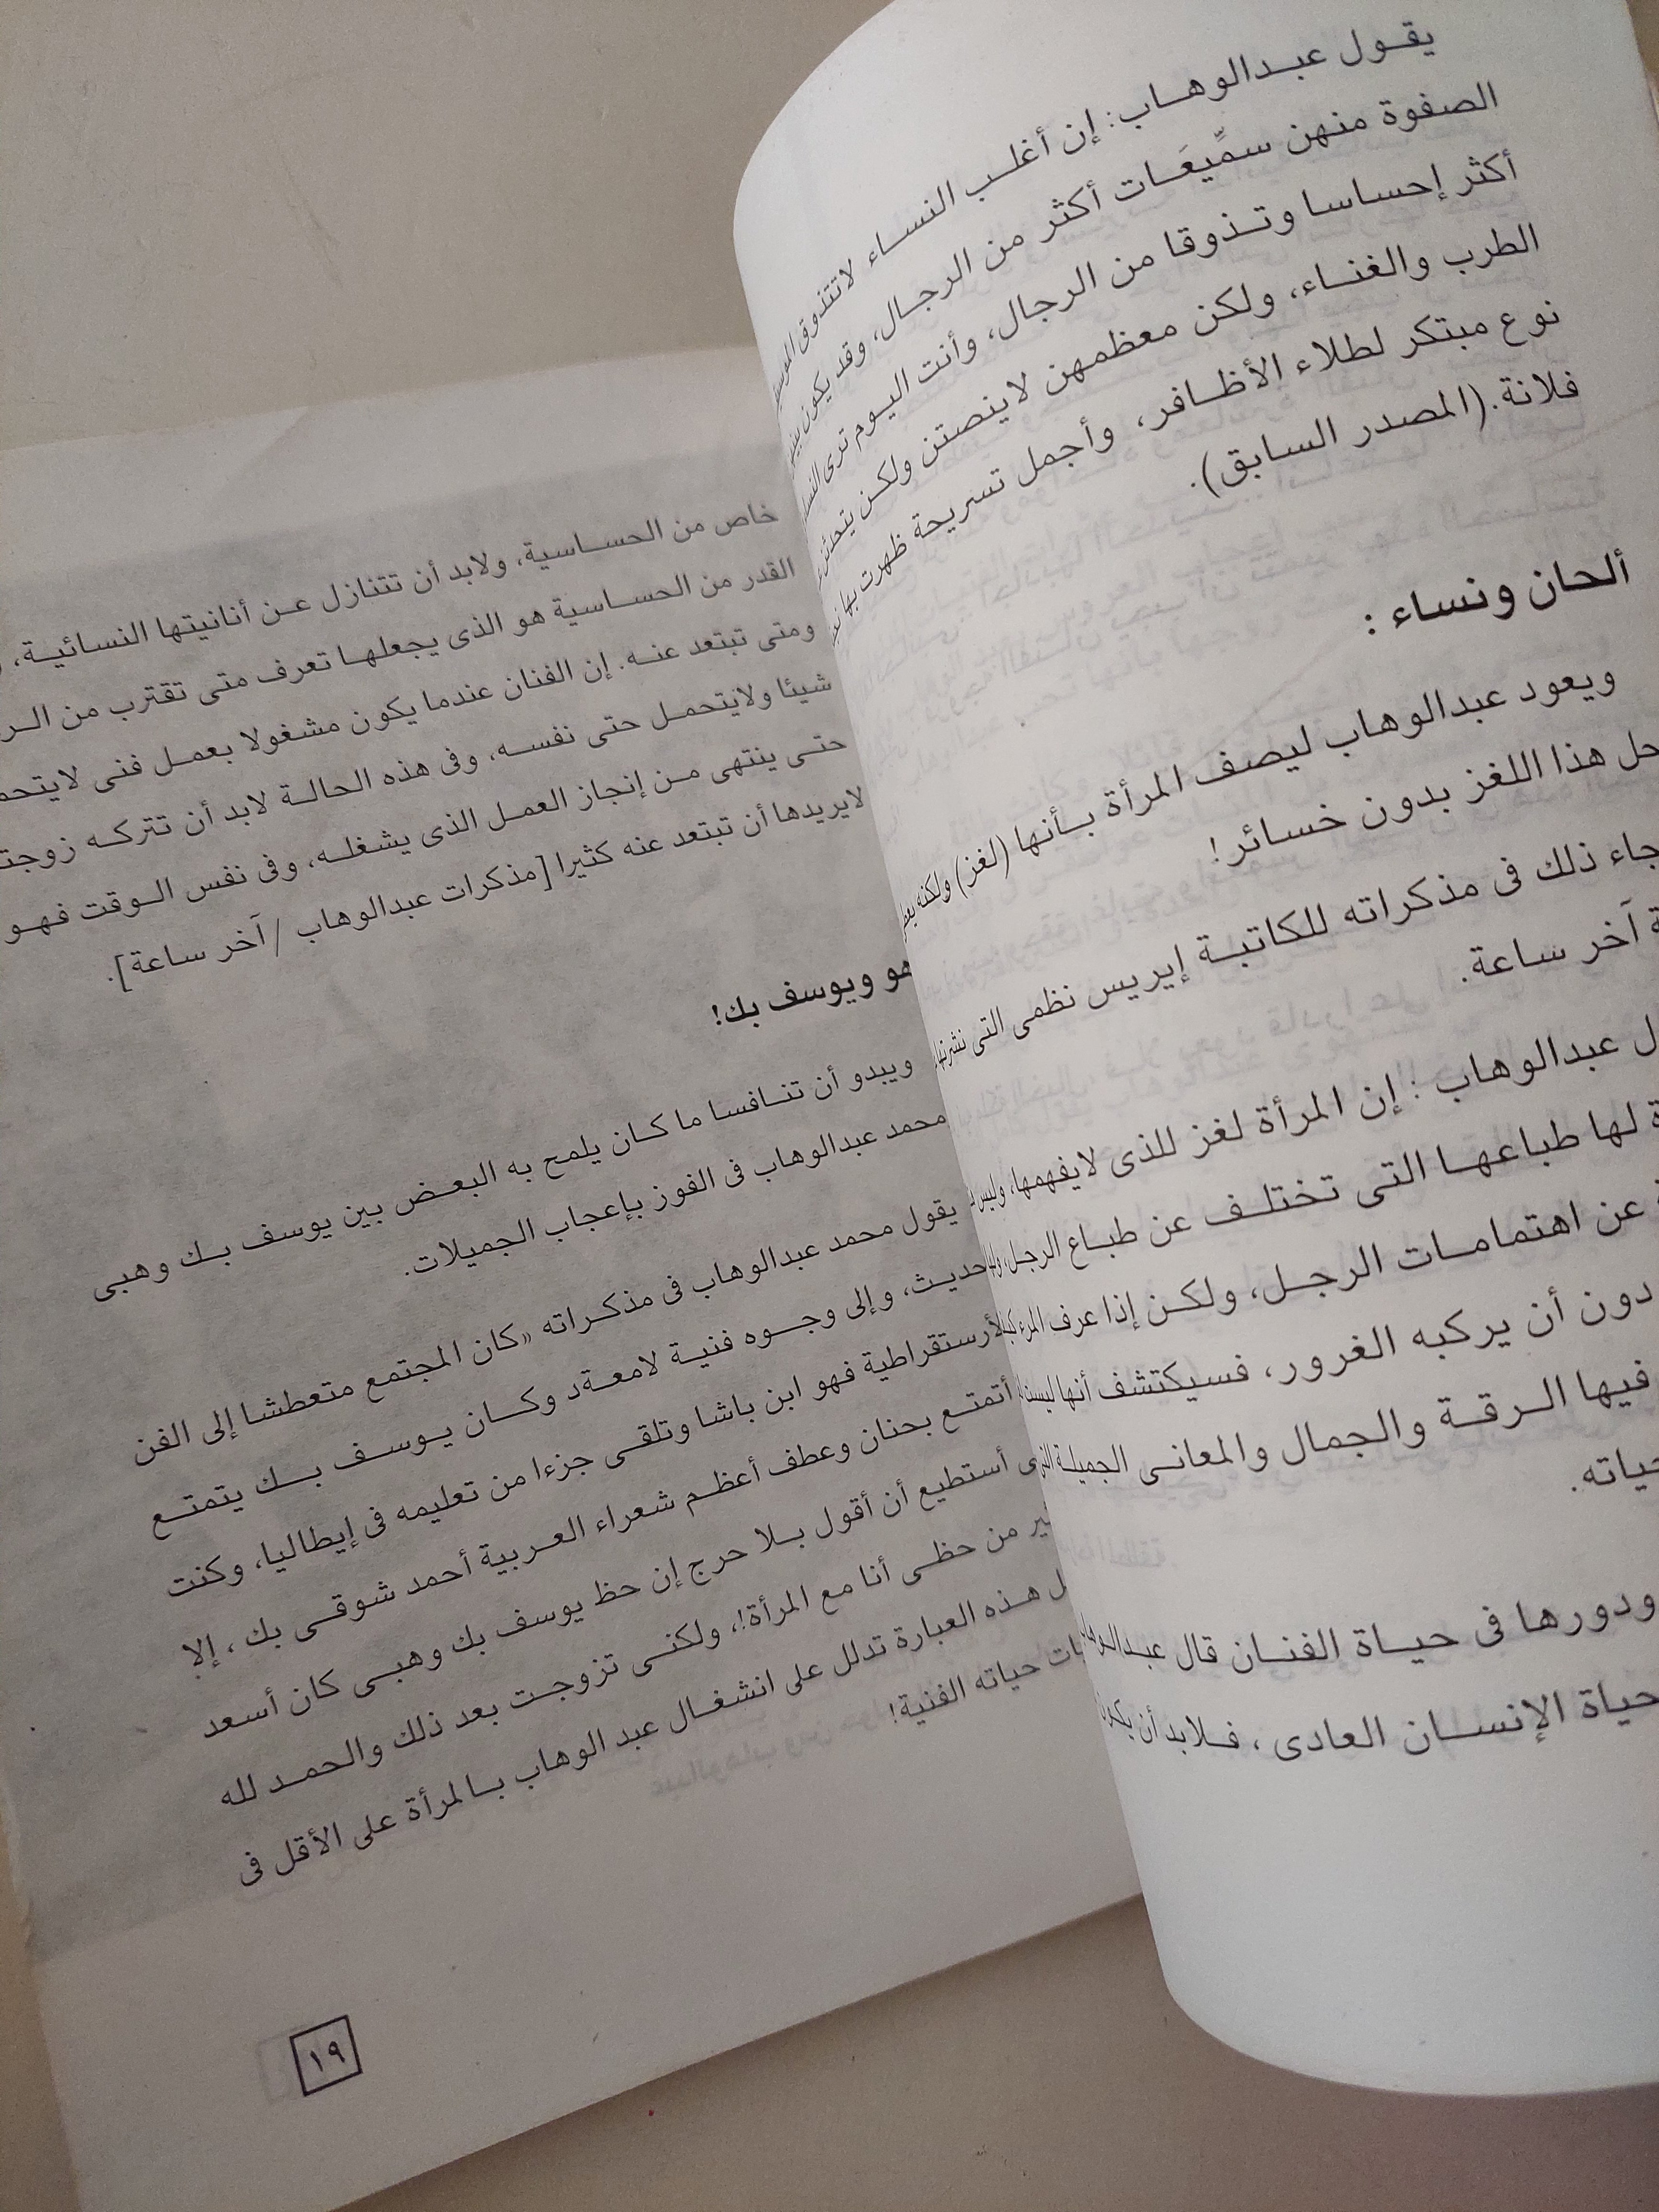 يقول عبدالوهاب: إن أغلب النساء لاتتذوق
الصفوة منهن سمِّيعَات أكثر من الرجال، وقد يكون
أكثر إحساسا وتذوقا من الرجال، وأنت اليوم ترى
الطرب والغناء، ولكن معظمهن لاينصتن ولكن يتحدثن
نوع مبتكر لطلاء الأظافر، وأجمل تسريحة ظهرت بها
فلانة. (المصدر السابق).
ألحان ونساء :
ويعود عبدالوهاب ليصف المرأة بأنها (لغز) ولكنه
حل هذا اللغز بدون خسائر!
جاء ذلك فى مذكراته للكاتبة إيريس نظمى التى نشرتها
آخر ساعة.
عبدالوهاب : إن المرأة لغز للذى لايفهمها، وليس
لها طباعها التى تختلف عن طباع الرجل،
عن اهتمامات الرجل، ولكن إذا عرف المرء
دون أن يركبه الغرور، فسيكتشف أنها ليست
فيها الرقة والجمال والمعانى الجميلة
حياته.
ودورها فى حياة الفنان قال
حياة الإنسان العادى ، فلابد أن
خاص من الحساسية، ولابد أن تتنازل عن أنانيتها النسائية،
القدر من الحساسية هو الذى يجعلها تعرف متى تقترب من
ومتى تبتعد عنه. إن الفنان عندما يكون مشغولا بعمل فنى
شيئا ولايتحمل حتى نفسه، وفى هذه الحالة لابد أن تتركه
حتى ينتهى من إنجاز العمل الذى يشغله، وفى نفس الوقت فهو
لايريدها أن تبتعد عنه كثيرا [مذكرات عبدالوهاب / آخر ساعة].
هو ويوسف بك!
ويبدو أن تنافسا ما كان يلمح به البعض بين يوسف بك وهبى
محمد عبدالوهاب فى الفوز بإعجاب الجميلات.
يقول محمد عبدالوهاب فى مذكراته «كان المجتمع متعطشا إلى الفن
حديث، وإلى وجوه فنية لامعةد وكان يوسف بك يتمتع
لأرستقراطية فهو ابن باشا وتلقى جزءا من تعليمه فى إيطاليا، وكنت
أتمتع بحنان وعطف أعظم شعراء العربية أحمد شوقى بك ، إلا
أستطيع أن أقول بلا حرج إن حظ يوسف بك وهبى كان أسعد
من حظى أنا مع المرأة!، ولكنى تزوجت بعد ذلك والحمد لله
هذه العبارة تدلل على انشغال عبد الوهاب بالمرأة على الأقل فى
حياته الفنية!
١٩